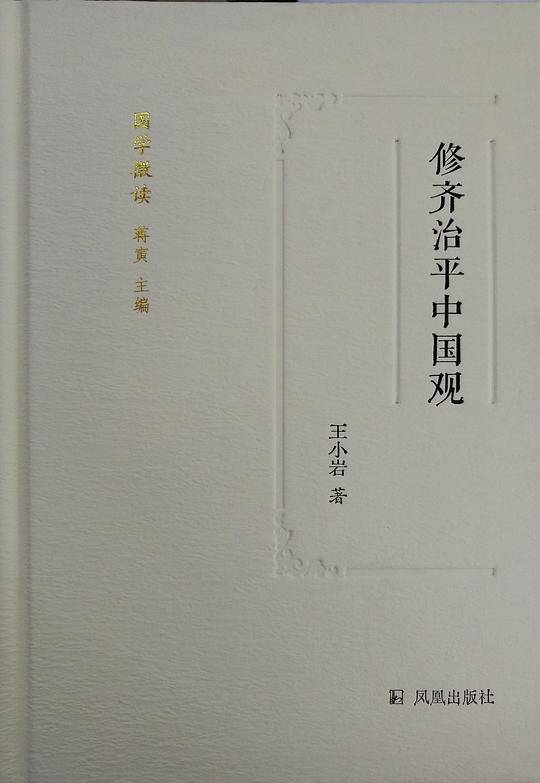 修齐治平中国观
王小岩 著
国学微读 蒋寅 主编
凤凰出版社